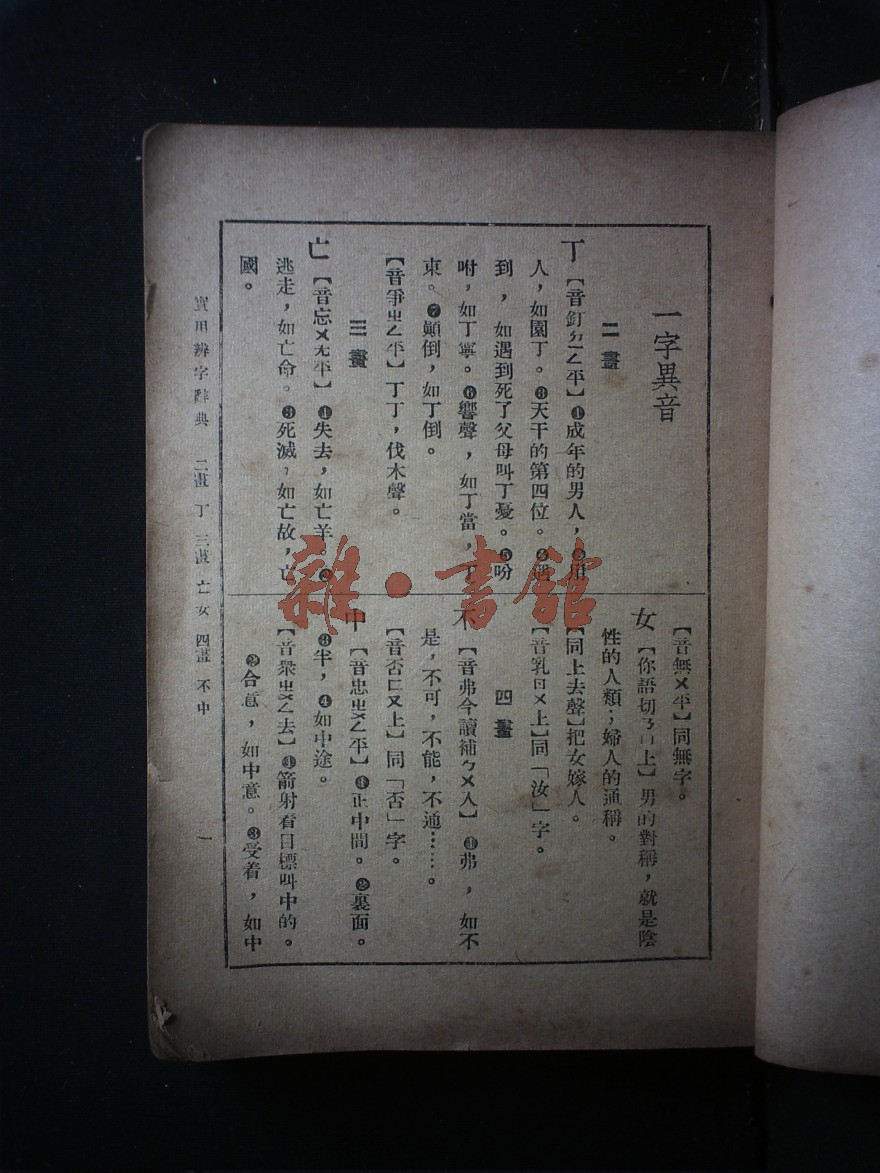 一字異音
二畫
丁【音釘ㄉㄧㄥ平】❶成年的男人,❷用
人,如園丁。❸天干的第四位。❹遇
到,如遇到死了父母叫丁憂。❺吩
咐,如丁寧。❻響聲,如丁當,丁
東。❼顚倒,如丁倒。
【音爭ㄓㄥ平】丁丁,伐木聲。
三畫
亡【音忘ㄨㄤ平】❶失去,如亡羊。❷
逃走,如亡命。❸死滅,如亡故,亡
國。
【音無ㄨ平】同無字。
女【你語切ㄋㄩ上】男的對稱,就是陰
性的人類;婦人的通稱。
【同上去聲】把女嫁人。
【音乳ㄖㄨ上】同「汝」字。
四畫
不【音弗今讀補ㄅㄨ入】❶弗,如不
是,不可,不能,不通……。
【音否ㄈㄡ上】同「否」字。
中【音忠ㄓㄨㄥ平】❶正中間。❷裏面。
❸半,❹如中途。
【音衆ㄓㄨㄥ去】❶箭射着目標叫中的。
❷合意,如中意。❸受着,如中
實用辨字辭典 二畫 丁 三畫 亡女 四畫 不中
一
雜·書館